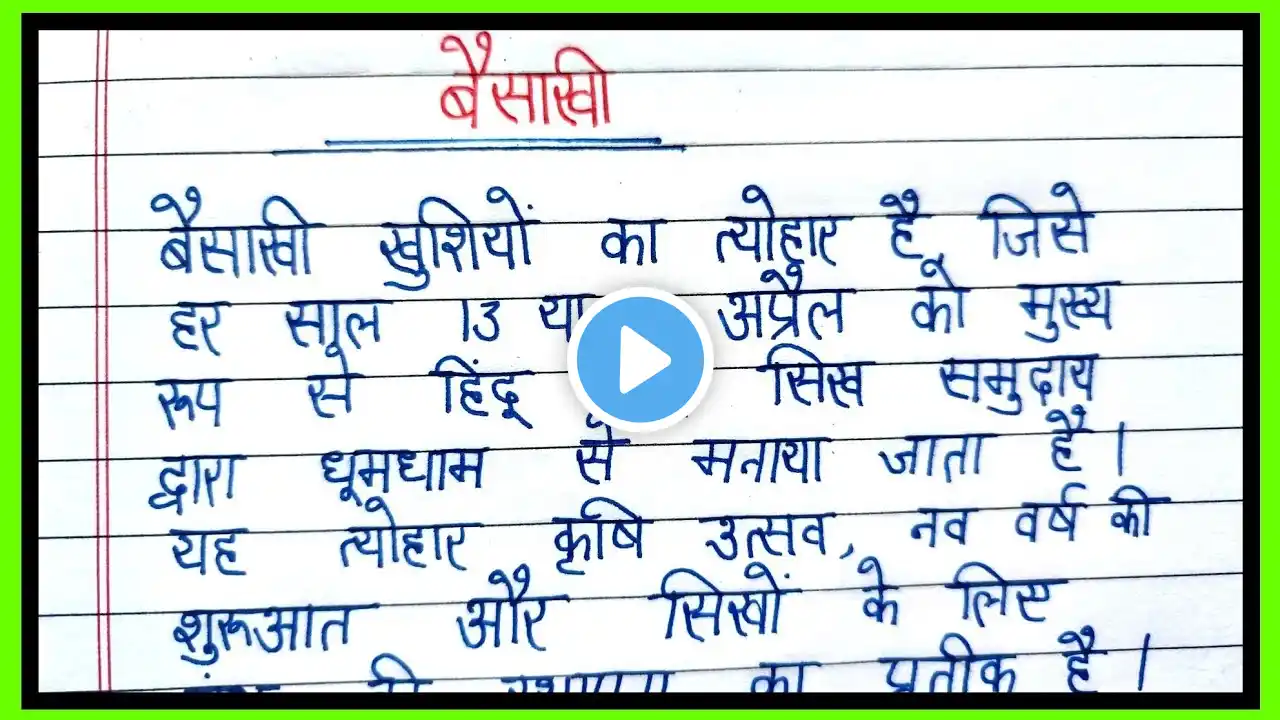 बैसाखी
बैसाखी खुशियों का त्योहार है, जिसे
हर साल 13 या अप्रैल को मुख्य
रूप से हिंदू सिख समुदाय
द्वारा धूमधाम से मनाया जाता है।
यह त्योहार कृषि उत्सव, नव वर्ष की
शुरूआत और सिखों के लिए
का प्रतीक है।